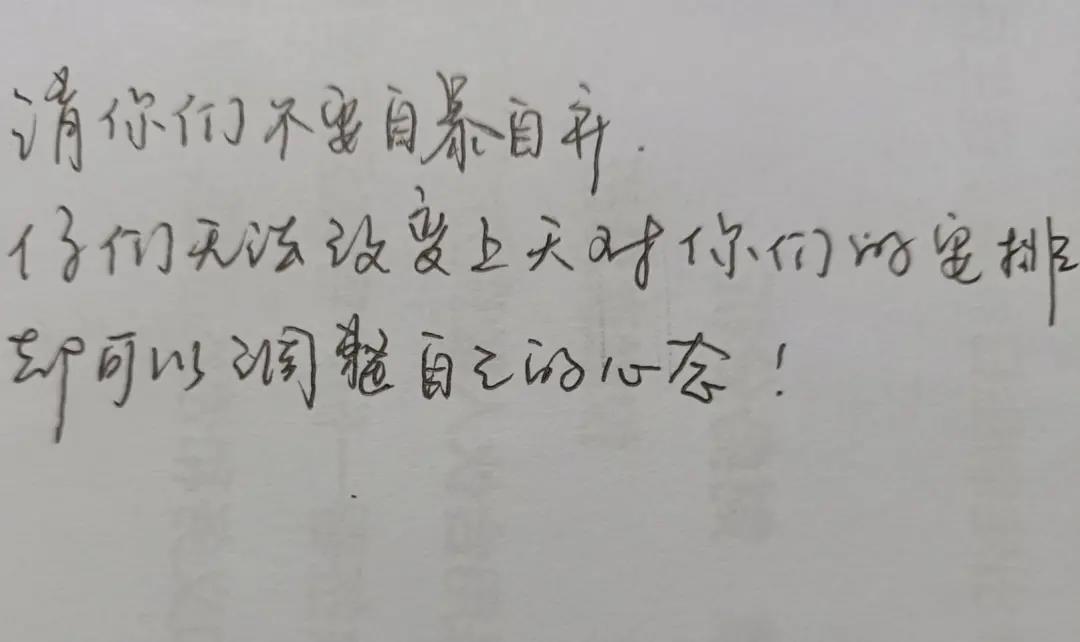 请你们不要自暴自弃.
你们无法改变上天对你们的安排
却可以调整自己的心态！